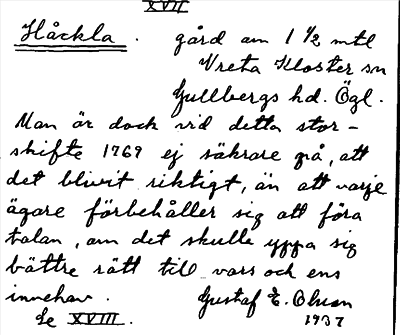 XVII
Håckla. gård am 1 1/2 mtl
Vreta Kloster sn
Gullbergs hd. Ögl.
Man är dock vid detta stor-
skifte 1769 ej säkrare på, att
det blivit riktigt, än att varje
ägare förbehåller sig att föra
talan, am det skulle yppa sig
bättre rätt till vars och ens
innehav. Gustaf E. Olson
Se XVIII. 1937